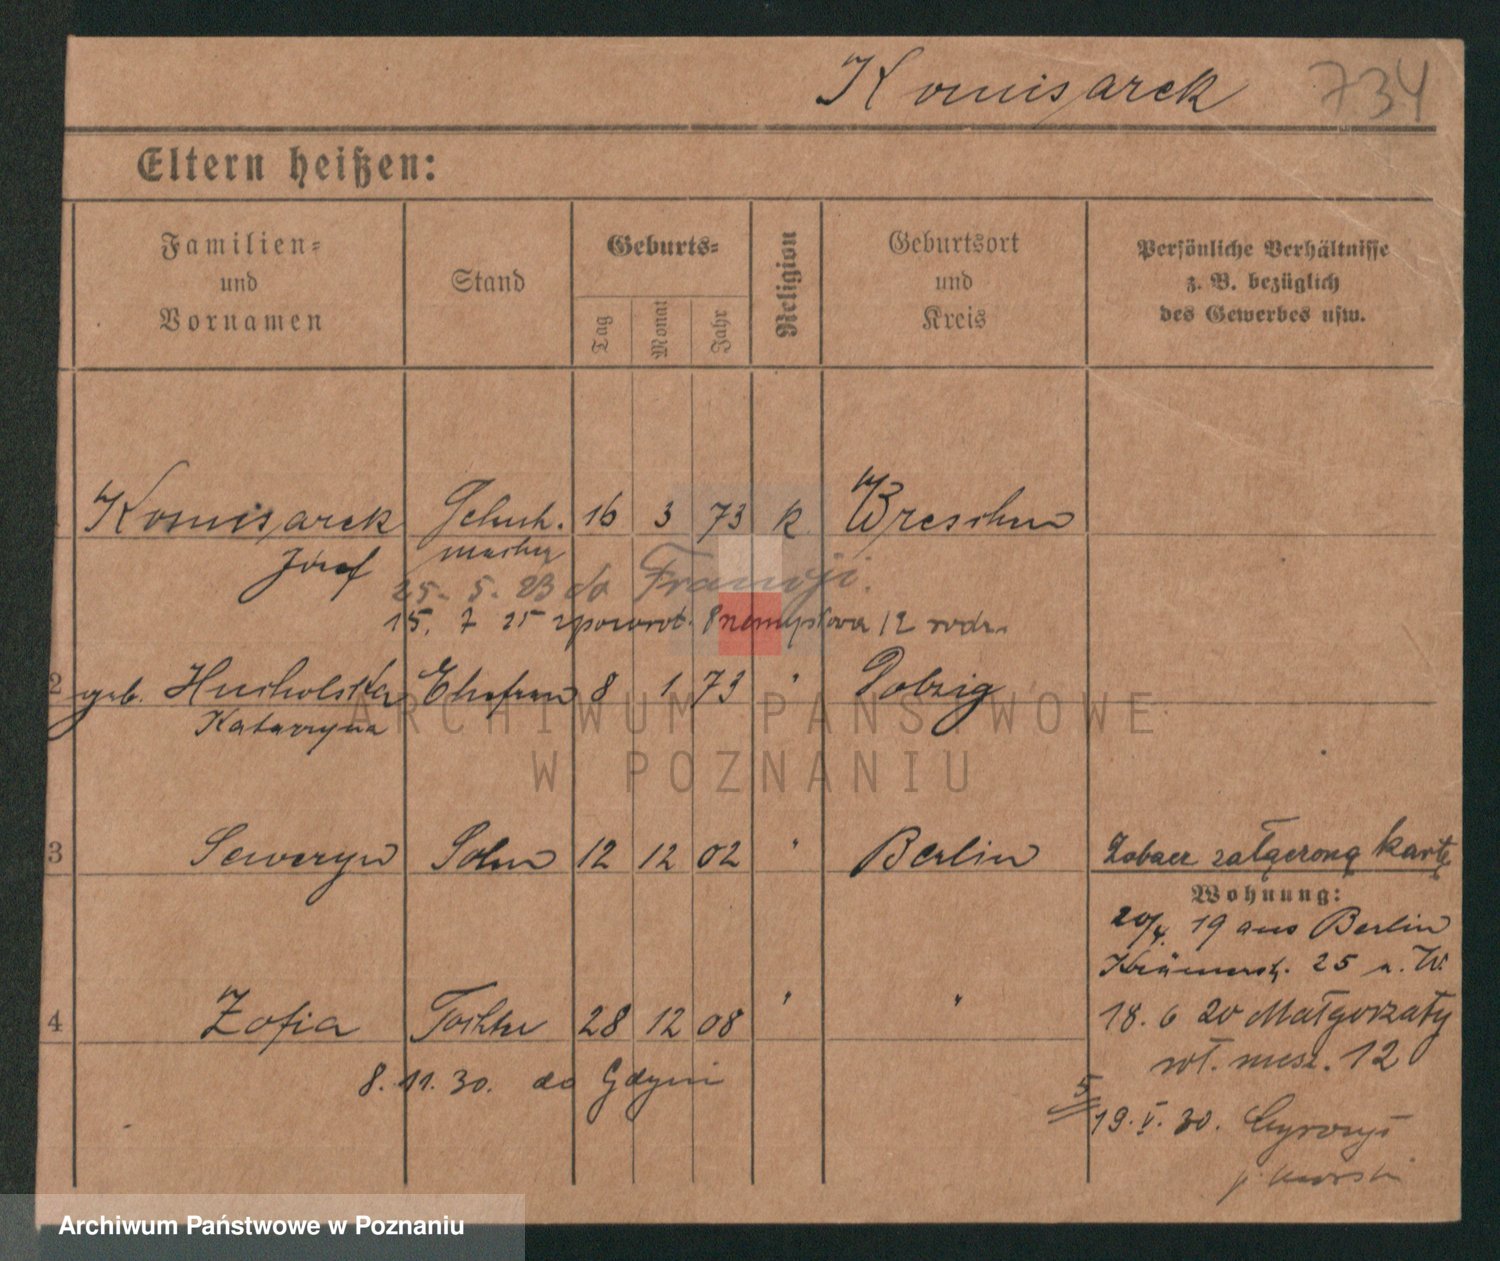 Komisarek 734
Eltern heißen:
Familien- und Vornamen
Stand
Geburts-
Tag
Monat
Jahr
Religion
Geburtsort und Kreis
Persönliche Verhältnisse
z. B. bezüglich
des Gewerbes usw.
Komisarek 16 3 73 k Wreschen
Józef
25. 5. 23 do Francji.
15. 7 25 zpowrot. Przemysłowa 12
2 geb. Ehefrau 8 1 73 "
Katarzyna
3 Seweryn Sohn 12 12 02 " Berlin Zobacz załączoną kartę
Wohnung:
20/4. 19 aus Berlin
25
4 Zofia Tochter 28 12 08 " "
18. 6 20 Małgorzaty
12
8. 11. 30. do Gdyni
5
19. V. 30.
ARCHIWUM PAŃSTWOWE
W POZNANIU
Archiwum Państwowe w Poznaniu